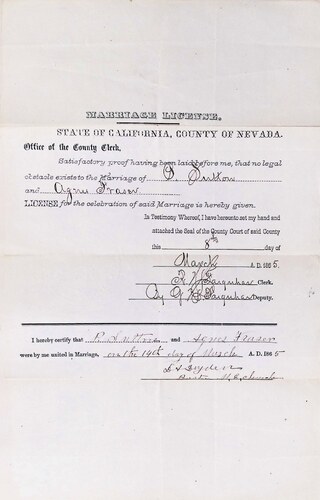 MARRIAGE LICENSE.
STATE OF CALIFORNIA, COUNTY OF NEVADA.
Office of the County Clerk,
Satisfactory proof having been laid before me, that no legal
obstacle exists to the Marriage of P. Sutton
and Agnes Fraser
LICENSE for the celebration of said Marriage is hereby given.
In Testimony Whereof, I have hereunto set my hand and
attached the Seal of the County Court of said County
this 8th day of
March A. D. 1865
Clerk.
By Deputy.
I hereby certify that P. Sutton and Agnes Fraser
were by me united in Marriage, on the 14th day of March A. D. 1865
M. E. Church